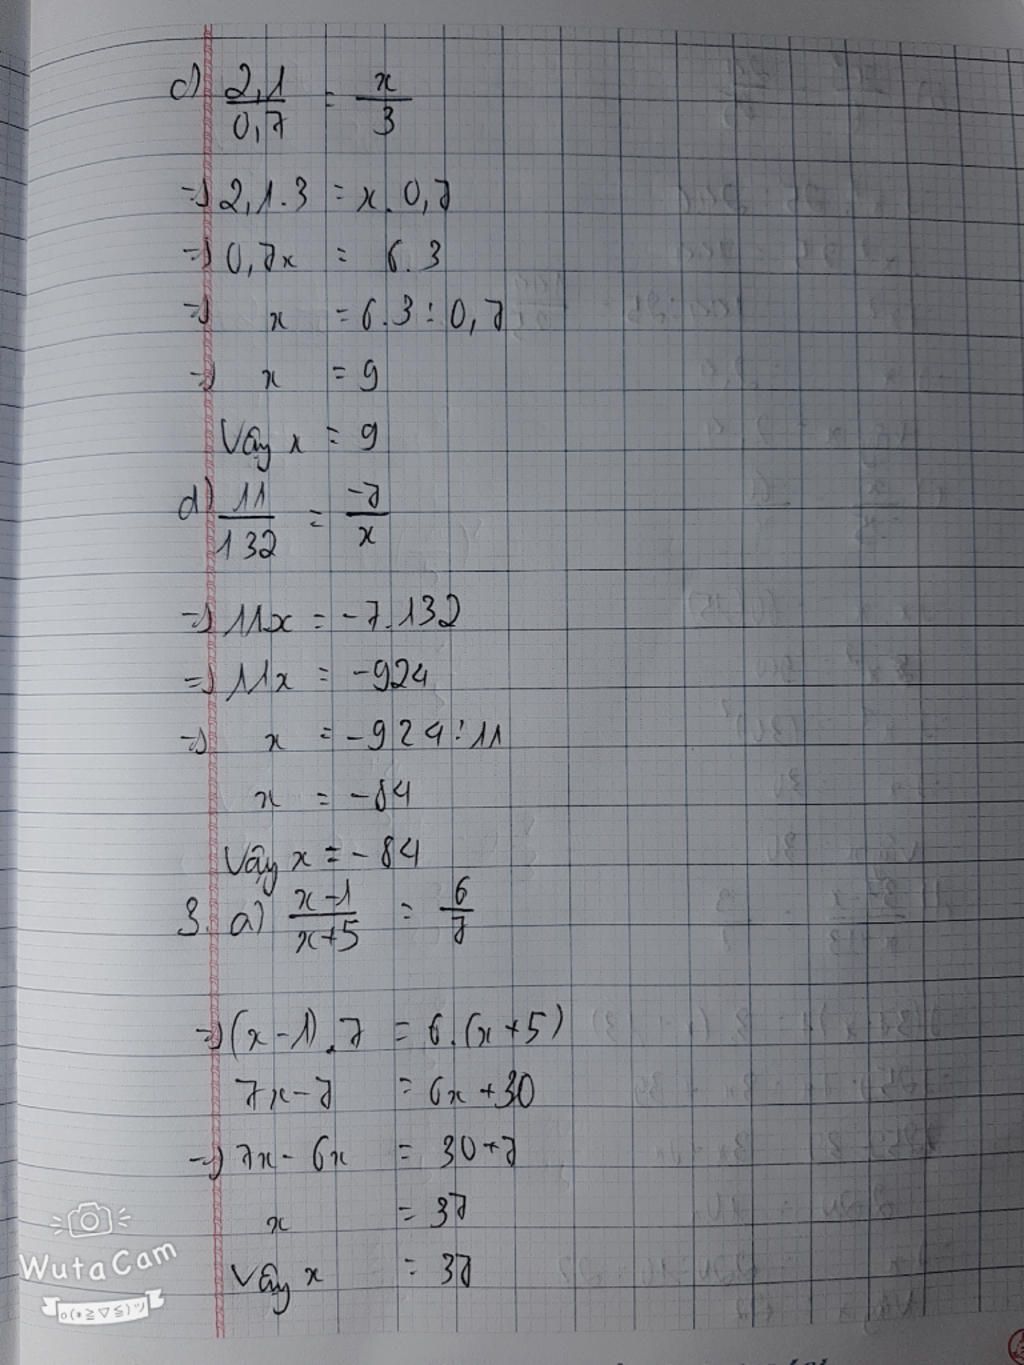 c) 2,1/0,7 = x/3
=> 2,1.3 = x.0,7
=> 0,7x = 6.3
=> x = 6.3 : 0,7
=> x = 9
Vậy x = 9
d) 11/132 = -7/x
=> 11x = -7.132
=> 11x = -924
=> x = -924 : 11
x = -84
Vậy x = -84
3. a) x-1/x+5 = 6/7
=> (x-1).7 = 6.(x+5)
7x-7 = 6x+30
=> 7x-6x = 30+7
x = 37
Vậy x = 37
WutaCam
o(*≧▽≦)ツ